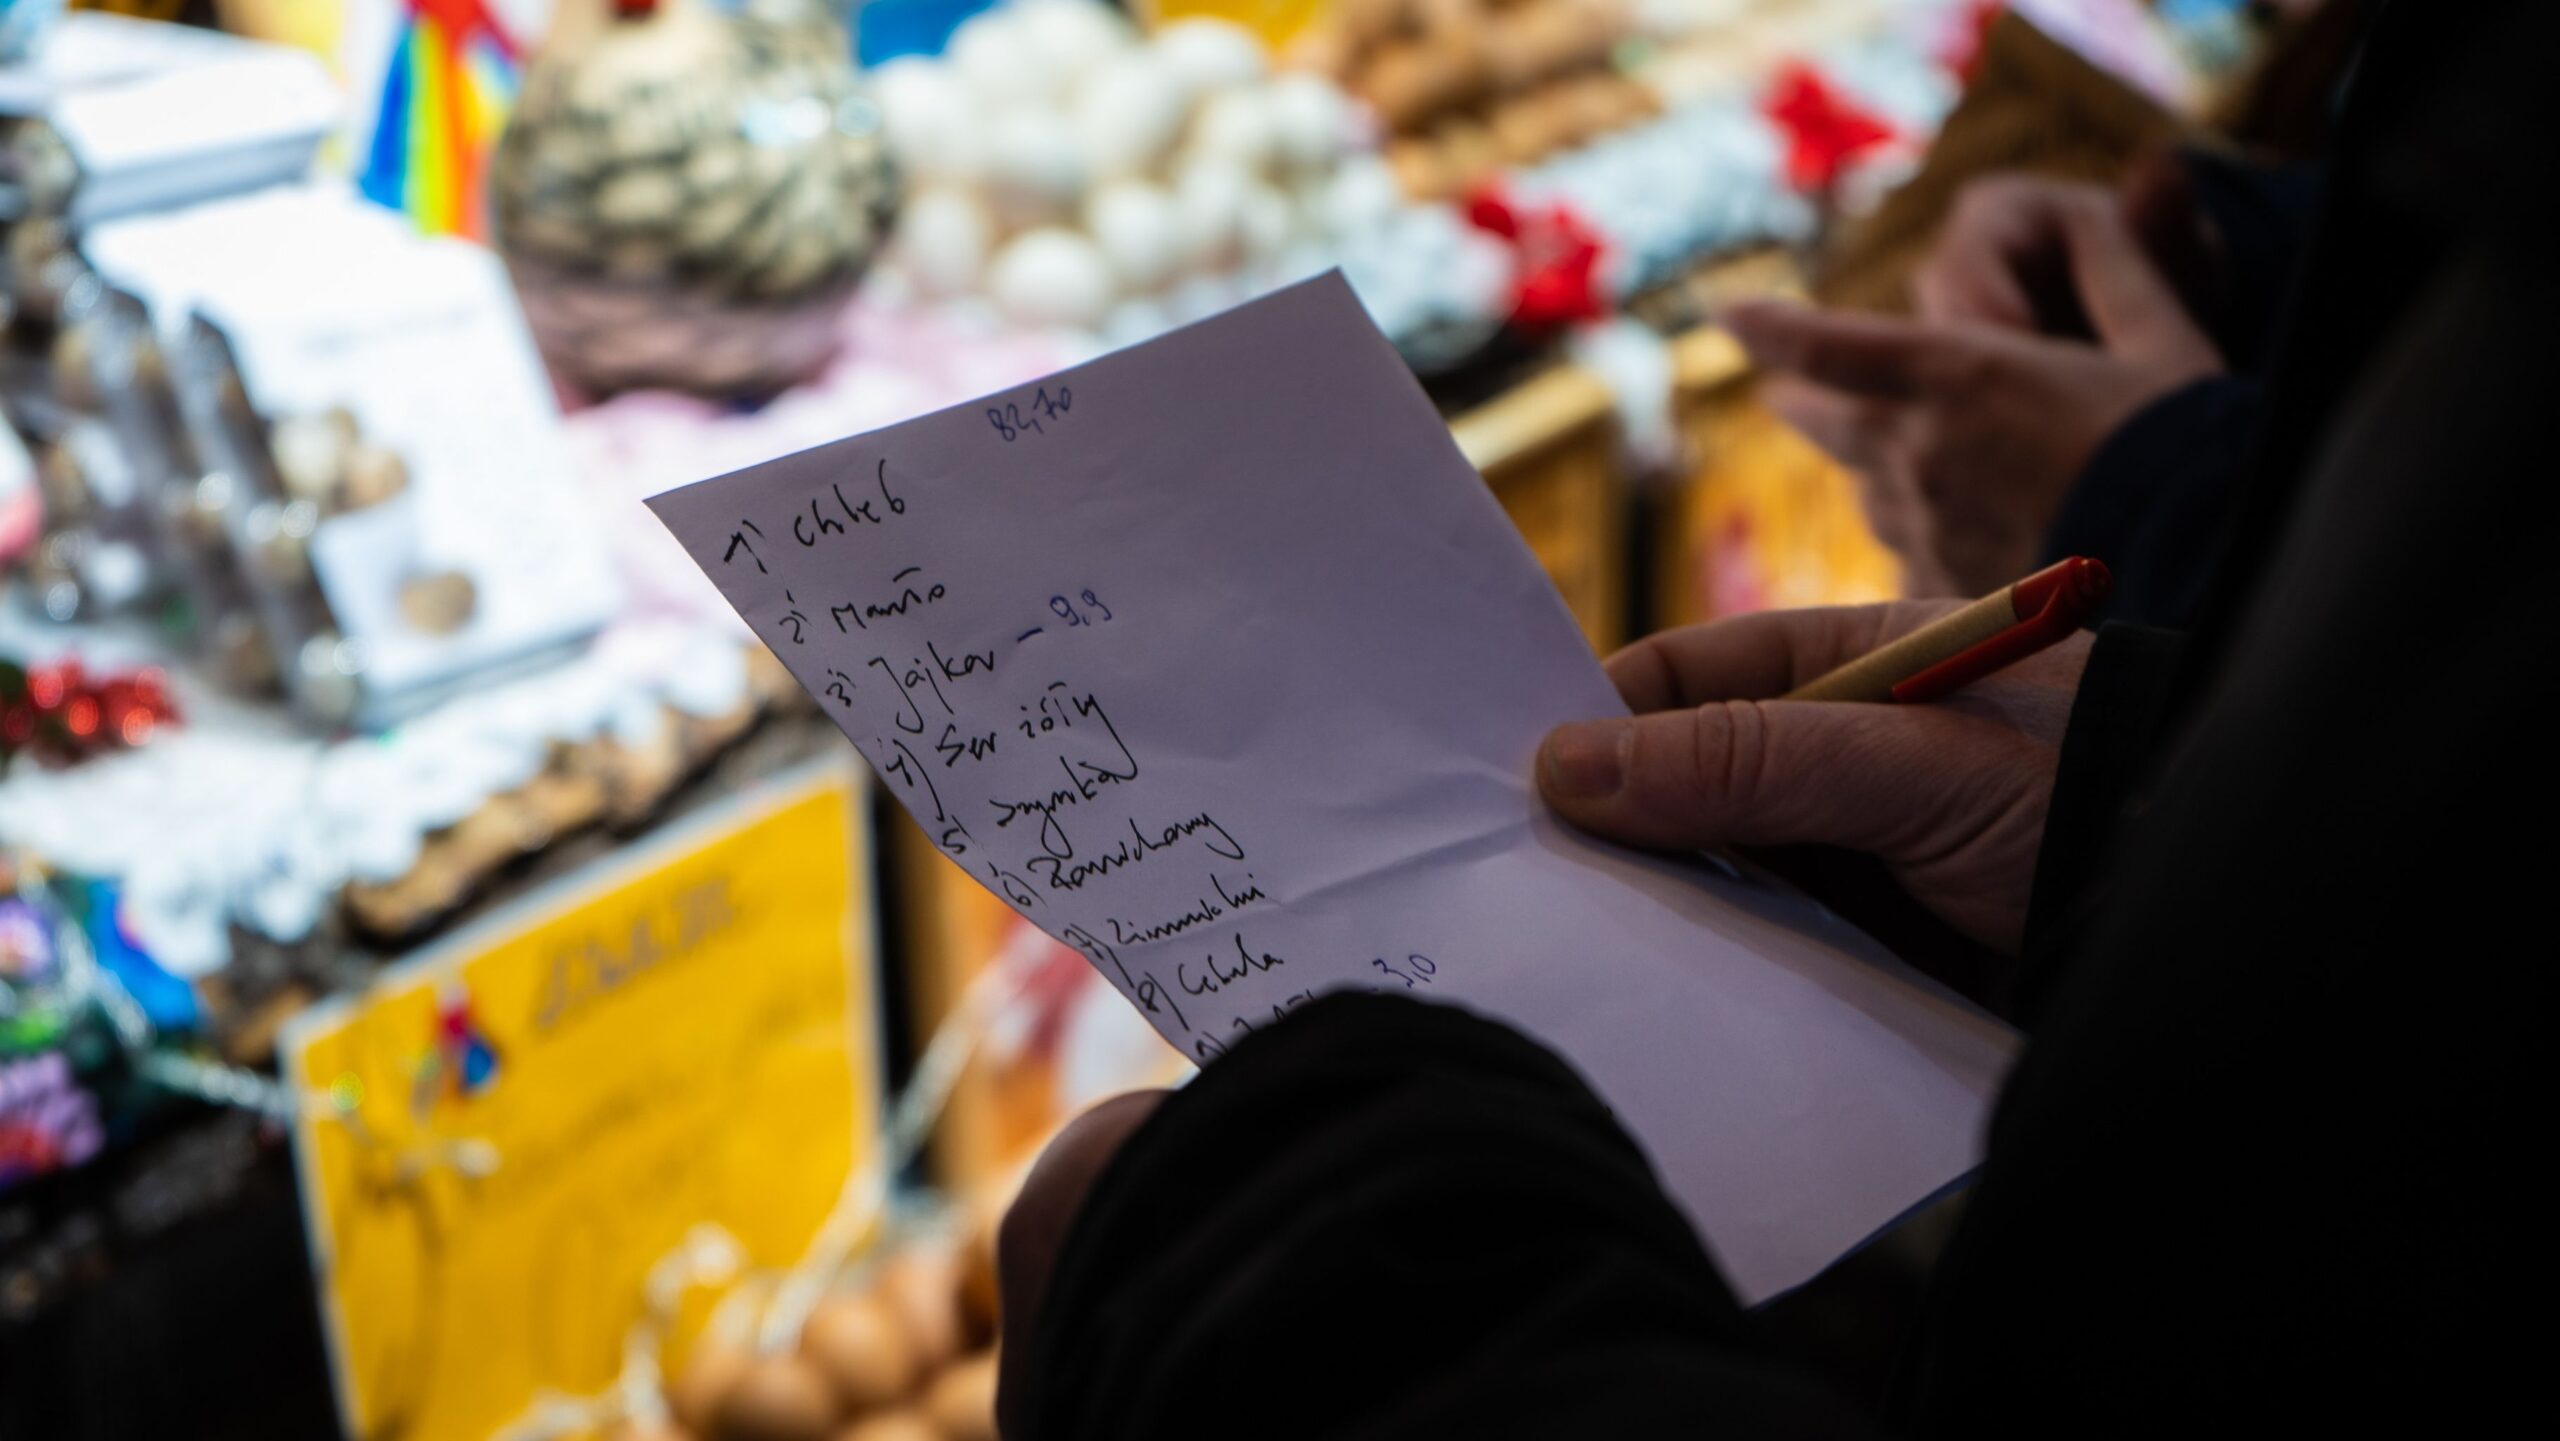 82,70
1) chleb
2) Masło
3) Jajka – 9,9
4) Ser żółty
5) szynka
6)
7) Ziemniaki
8) Cebula
9) – 3,0